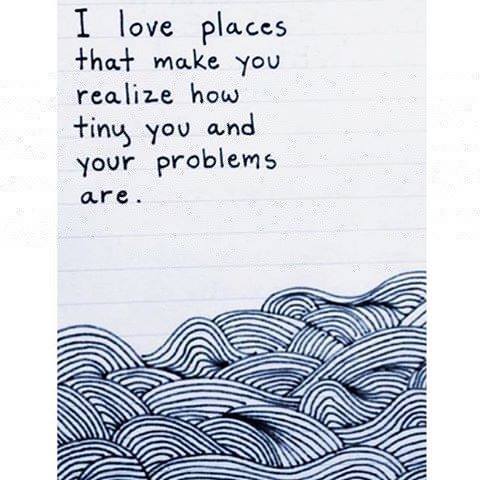 I love places
that make you
realize how
tiny you and
your problems
are.